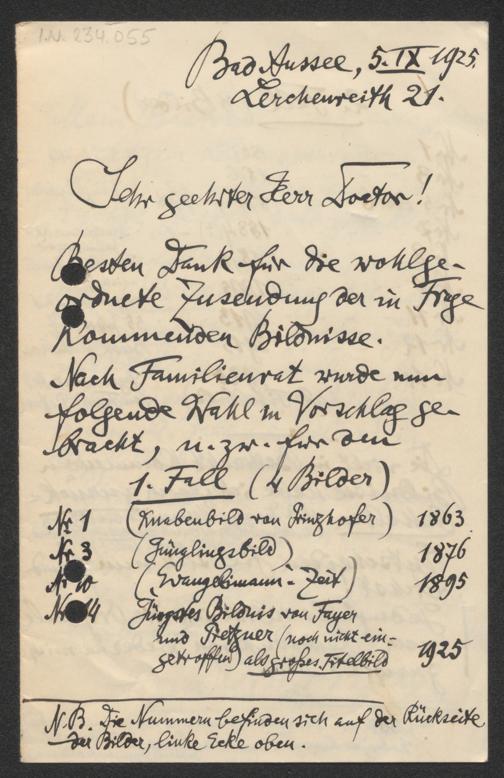 I.N. 234.055
Bad Aussee, 5. IX 1925.
Lerchenreith 21.
Sehr geehrter Herr Doctor!
Besten Dank für die wohlge-
ordnete Zusendung der in Frage
kommenden Bildnisse.
Nach Familienrat wurde nun
folgende Wahl in Vorschlag ge-
bracht, u. zw. für den
1. Fall (4 Bilder)
Nr 1 (Knabenbild von Prinzhofer) 1863
Nr 3 (Jünglingsbild) 1876
Nr 10 (Evangelimann-Zeit) 1895
Nr 14 Jüngstes Bildnis von Fayer
und Pretzner (noch nicht ein-
getroffen) als großes Titelbild 1925
N.B. Die Nummern befinden sich auf der Rückseite
der Bilder, linke Ecke oben.